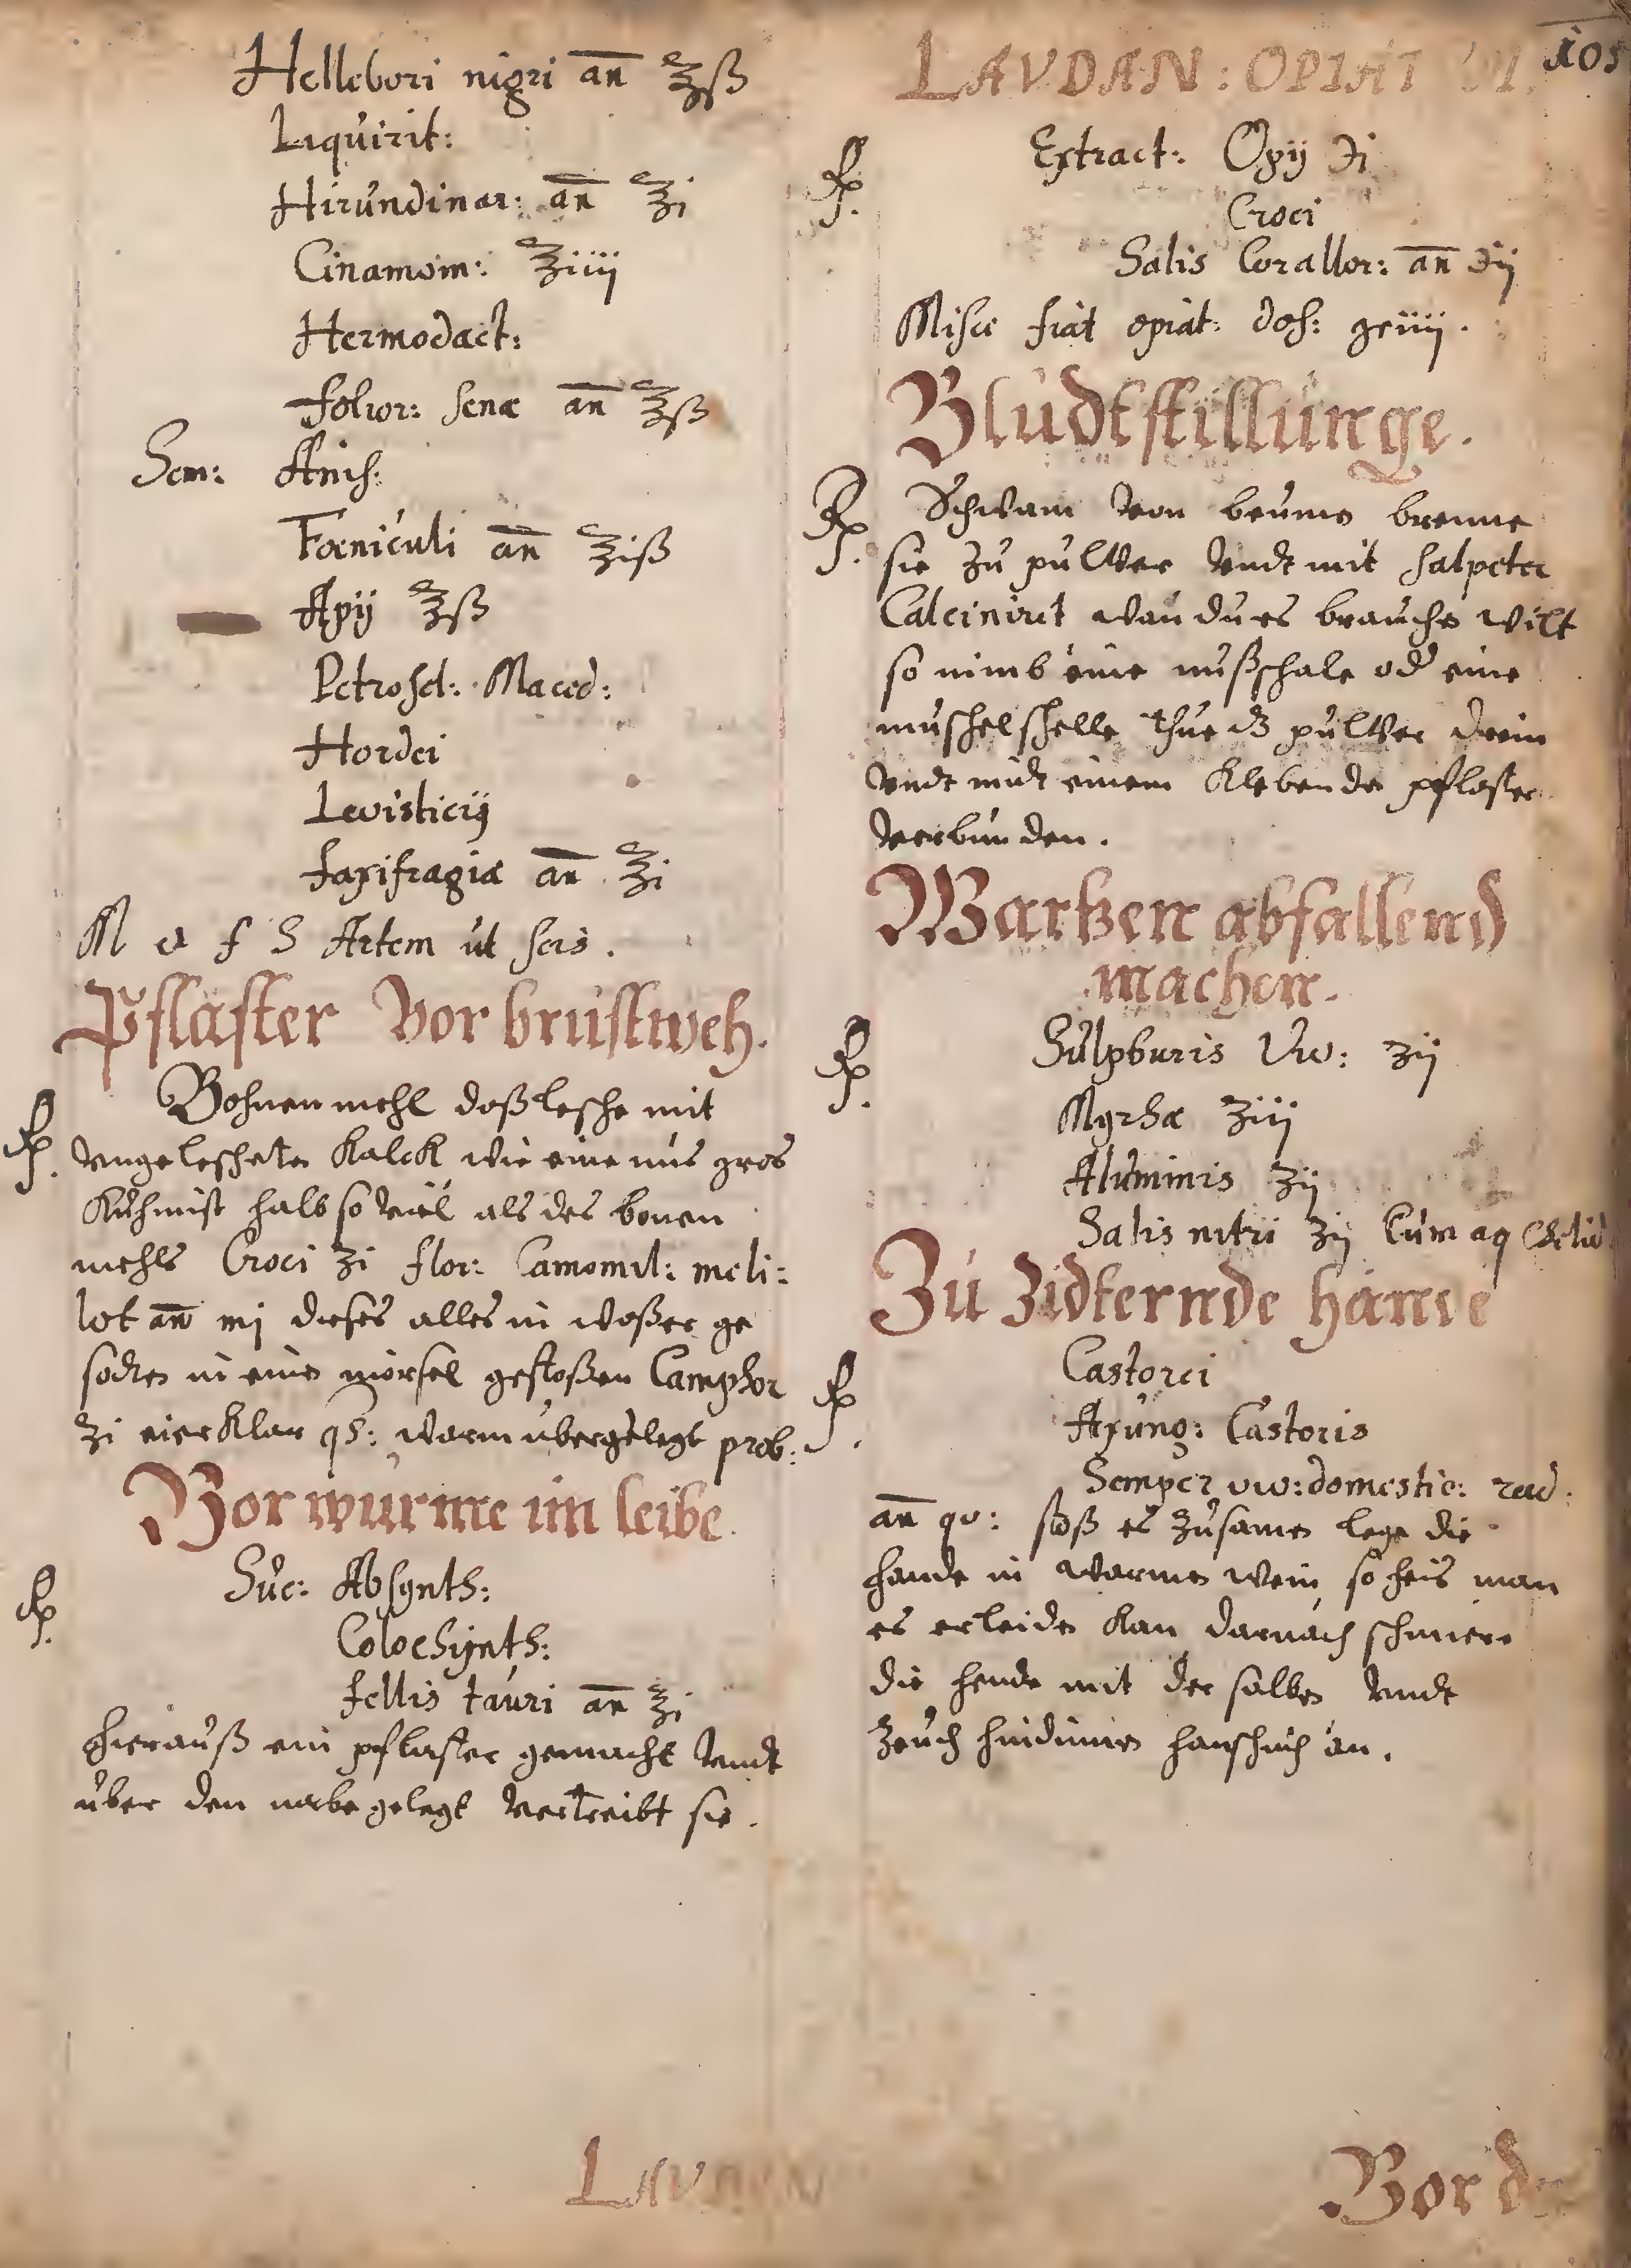 Hellebori nigri an ℥ß
Liquirit:
Hirundinar: an ℥i
Cinamom: ℥iiij
Hermodact:
Folior: senæ an ℥ß
Sem: Anis:
Fœniculi an ℥iß
Apij ℥ß
Petrosel: Maced:
Hordei
Levisticij
Saxifragiæ an ℥i
M et f S Artem ut scis.
Pflaster vor brustweh.
℞ Bohnen mehl doß lesche mit
vngeleschete Kalck wie eine nus gros
Kuhmist halb so viel als des bonen
mehls Croci ʒi flor: Camomil: meli:
lot an mj dieses alles in waßer ge
soden in eine mörsel gestoßen Camphor
ʒi eierklar qs: warm übergelegt prob:
Vor wurme im leibe.
℞ Suc: Absynth:
Colochynth:
fellis tauri an ʒi
hierauß ein pflaster gemacht vndt
uber den nabe gelegt vertreibt sie.
LAVDAN
105
LAVDAN: OPIAT
℞ Extract: Opij ℈i
Croci
Salis Corallor: an ℈ij
Misce fiat opiat: dos: gr iiij.
Bludtstillunge.
℞ Schwam von beume brenne
sie zu pulver vndt mit salpeter
Calcinirt wan du es brauche wilt
so nimb eine nußschale od eine
muschelschelle thue dz pulver drein
vndt mit einem Klebende pflaster
verbunden.
Wartzen abfallend
machen.
℞ Sulphuris viv: ʒij
Myrhæ ʒiij
Aluminis ʒij
Salis nitri ʒij Cum aq Chelid
Zu Zidternde hände
℞ Castorei
Axung: Castoris
Semper viv: domestic: rad:
an qv: stoß es zusame lege die
hande in warme wein so heis man
es erleide kan darnach schmiere
die hende mit der salbe vndt
zeuch hindinne hanschuch an.
Vor de